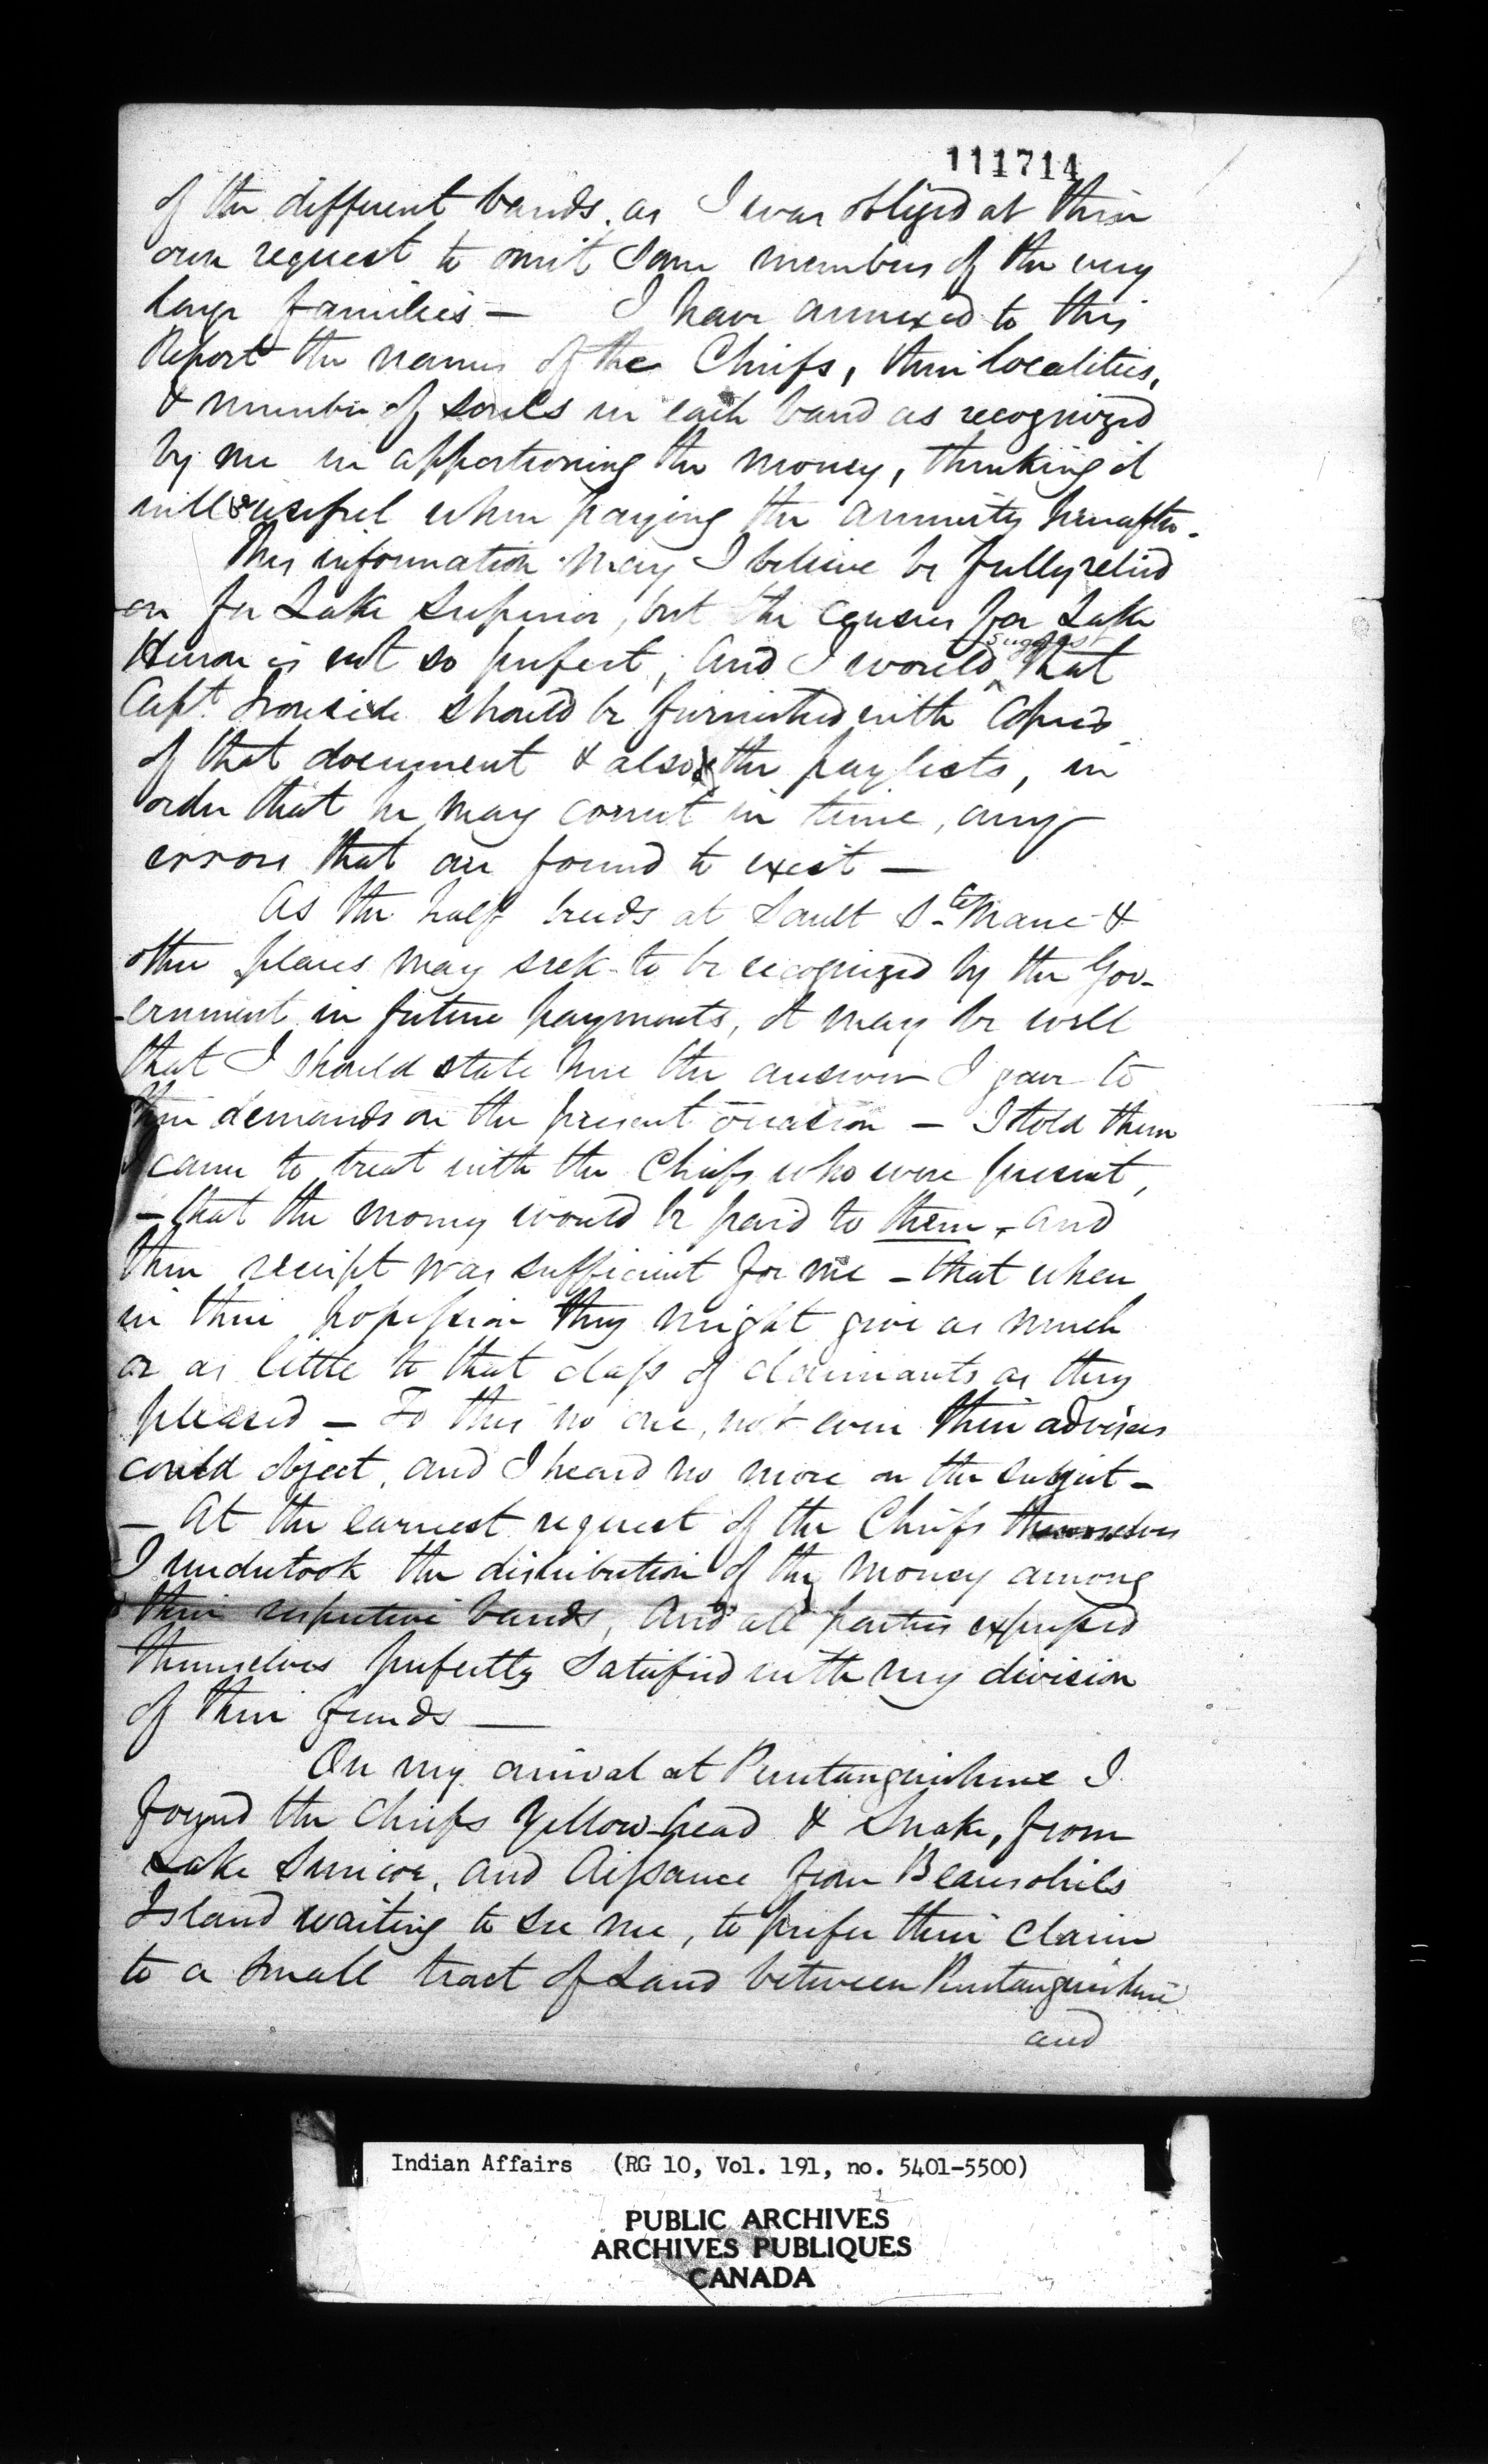 111714
of the different bands, as I was obliged at their
own request to omit some members of the very
large families — I have annexed to this
Report the names of the Chiefs, their localities,
& number of souls in each band as recognized
by me in apportioning the money, thinking it
will be useful when paying the annuity hereafter.
This information may I believe be fully relied
on for Lake Superior, but the census for Lake
Huron is not so perfect, and I would suggest that
Capt. Ironside should be furnished with Copies
of that document & also the paylists, in
order that he may correct in time, any
errors that are found to exist —
As the half breeds at Sault Ste Marie &
other places may seek to be recognized by the Gov-
-ernment in future payments, it may be well
that I should state here the answer I gave to
their demands on the present occasion — I told them
I came to treat with the Chiefs who were present,
— that the money would be paid to them, and
their receipt was sufficient for me — that when
in their possession they might give as much
or as little to that class of claimants as they
pleased — To this no one, not even their advisers
could object, and I heard no more on the subject —
— At the earnest request of the Chiefs themselves
I undertook the distribution of the money among
their respective bands, and all parties expressed
themselves perfectly satisfied with my division
of their funds —
On my arrival at Penetanguishene I
found the Chiefs Yellow-head & Snake, from
Lake Simcoe, and Aissance from Beausoliels
Island waiting to see me, to prefer their claim
to a small tract of Land between Penetanguishene
and
Indian Affairs (RG 10, Vol. 191, no. 5401-5500)
PUBLIC ARCHIVES
ARCHIVES PUBLIQUES
CANADA